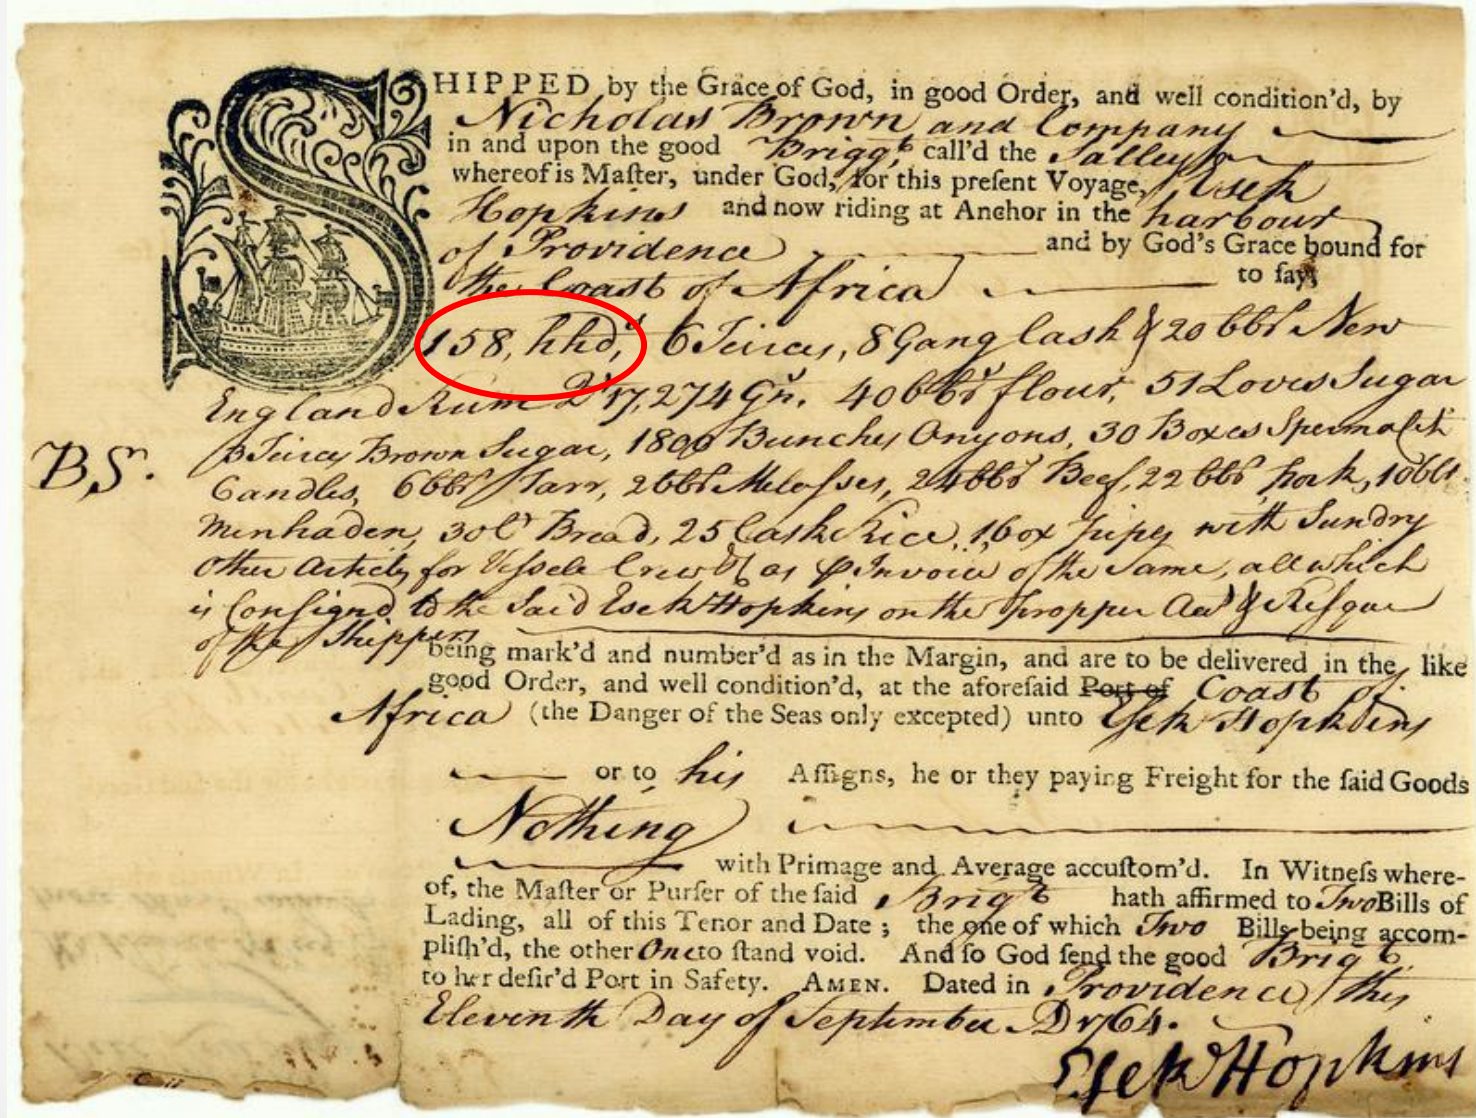 SHIPPED by the Grace of God, in good Order, and well condition'd, by
Nicholas Brown and Company
in and upon the good Briggt, call'd the Salley
whereof is Maſter, under God, for this preſent Voyage, Esek
Hopkins and now riding at Anchor in the harbour
of Providence and by God's Grace bound for
the Coast of Africa to ſay,
158, hhds, 6 Teirces, 8 Gang Cask & 20 bbls New
England Rum 17,274 Gn. 40 bbls flour, 51 Loves Sugar
3 Teirces Brown Sugar, 1800 Bunches Onyons, 30 Boxes
BS.
Candles, 6 bbls Tarr, 2 bbls Melaſses, 24 bbls Beef, 22 bbls pork, 10 bls
Menhaden, 30 Bread, 25 Casks Rice, 1 box pipes with Sundry
other Articles for Veſsels Crew as Invoice of the Same, all which
is Consignd to the Said Esek Hopkins on the propper & Reſque
of the Shippers
being mark'd and number'd as in the Margin, and are to be delivered in the like
good Order, and well condition'd, at the aforeſaid Port of Coast of
Africa (the Danger of the Seas only excepted) unto Eſek Hopkins
or to his Aſſigns, he or they paying Freight for the ſaid Goods
Nothing
with Primage and Average accuſtom'd. In Witneſs where-
of, the Maſter or Purſer of the ſaid Brigt hath affirmed to Two Bills of
Lading, all of this Tenor and Date ; the one of which Two Bills being accom-
pliſh'd, the other One to ſtand void. And ſo God ſend the good Brigt
to her deſir'd Port in Safety. AMEN. Dated in Providence this
Eleventh Day of September AD 1764.
Eſek Hopkins